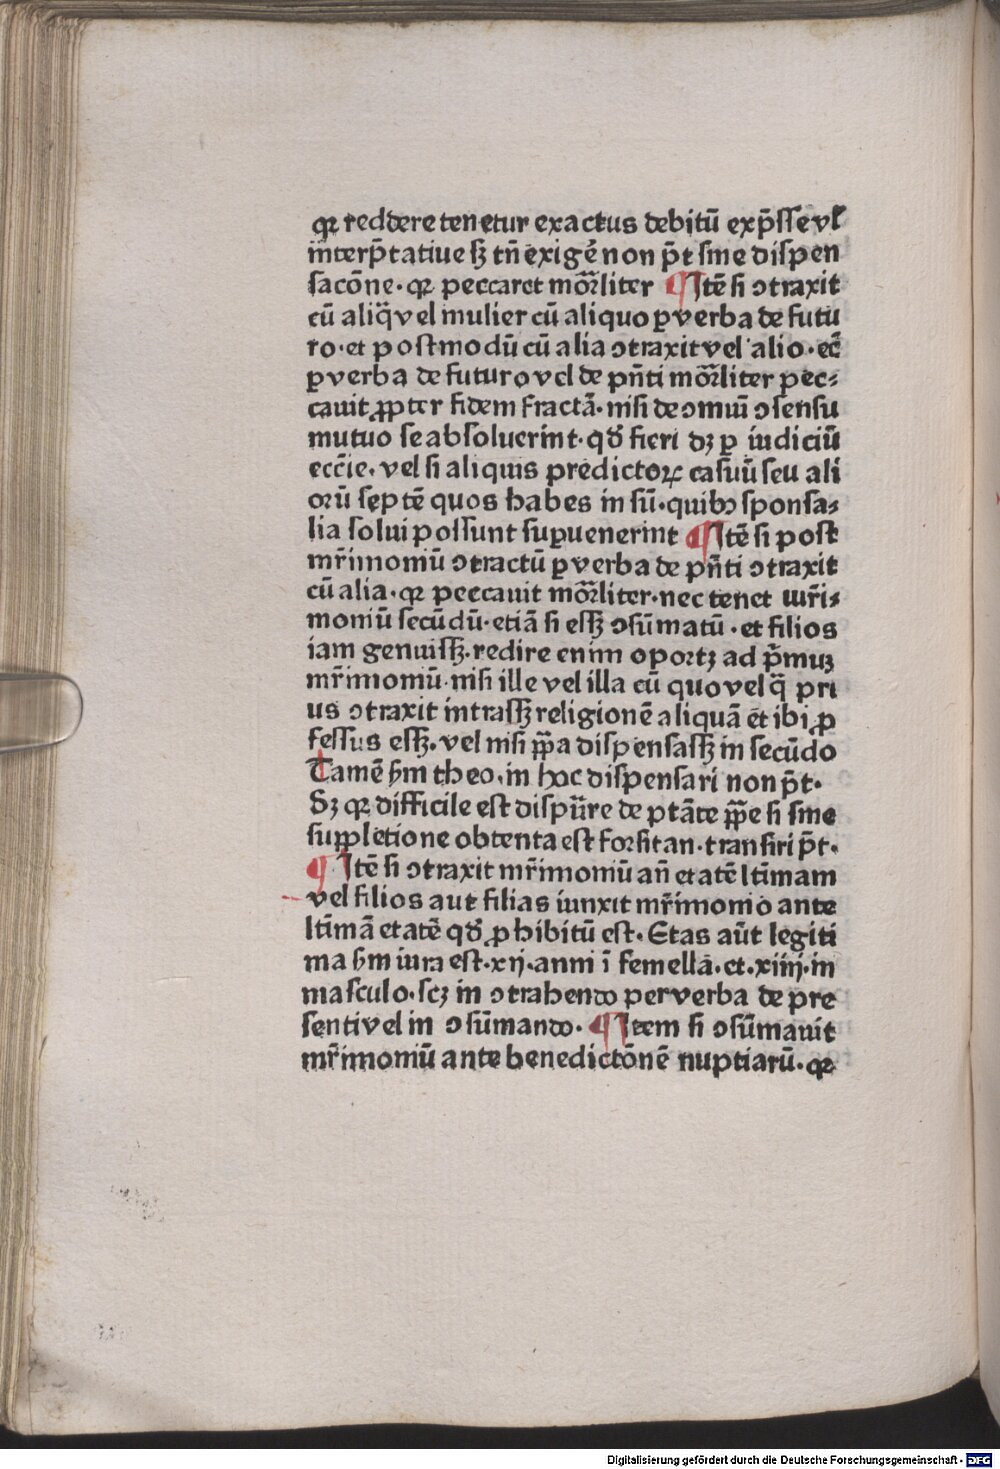 qꝛ reddere tenetur exactus debitū exp̄sse vl̓
interp̄tatiue sꝫ tn̄ exigē non p̄t sine dispen
sacōne · qꝛ peccaret mor̄liter ¶ Itē si ↄtraxit
cū aliq̄ vel mulier cū aliquo ꝑ verba de futu
ro · et postmodū cū alia ↄtraxit vel alio · ec̄
ꝑ verba de futuro vel de pn̄ti mor̄liter pec⸗
cauit ꝓpter fidem fractā · nisi de ↄmuī ↄsensu
mutuo se absoluerint · qd̓ fieri dꝫ ꝑ iudiciū
eccīe · vel si aliquis predictoꝝ casuū seu ali
orū septē quos habes in sū · quibꝰ sponsa⸗
lia solui possunt suꝑuenerint ¶ Itē si post
mr̄imoniū ↄtractū ꝑ verba de pn̄ti ↄtraxit
cū alia · qꝛ peccauit mor̄liter · nec tenet mr̄i⸗
moniū secūdū · etiā si essꝫ ↄsūmatū · et filios
iam genuissꝫ · redire enim oportꝫ ad p̄muꝫ
mr̄imoniū · nisi ille vel illa cū quo vel q̄ pri
us ↄtraxit intrassꝫ religionē aliquā et ibi ꝓ
fessus essꝫ · vel nisi ppa dispensassꝫ in secūdo
Tamē ẜm theo · in hoc dispensari non p̄t ·
Sꝫ qꝛ difficile est dispu̅re de ptāte ppe si sine
suppletione obtenta est forsitan · transiri p̄t ·
¶ Itē si ↄtraxit mr̄imoniū an̄ etatē ltīmam
vel filios aut filias iunxit mr̄imonio ante
ltīmā etatē qd̓ ꝓhibitū est · Etas aūt legiti
ma ẜm iura est · xij · anni ī femella · et · xiiij · in
masculo · scꝫ in ↄtrahendo per verba de pre
senti vel in ↄsūmando · ¶ Item si ↄsūmauit
mr̄imoniū ante benedictōnē nuptiarū · qꝛ
Digitalisierung gefördert durch die Deutsche Forschungsgemeinschaft - DFG